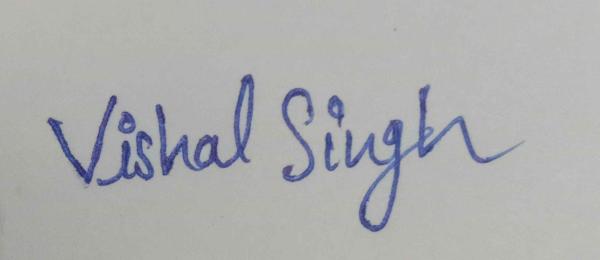 Vishal Singh